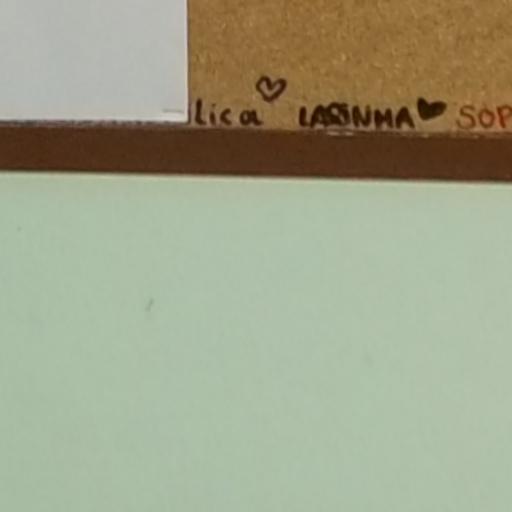 lica ♡ LARINHA ♥ SOP